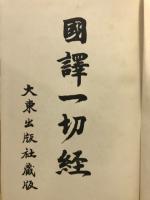 國譯一切経
大東出版社藏版